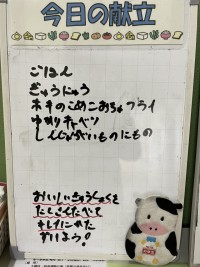 今日の献立
ごはん
ぎゅうにゅう
ホキのこめこおちゃフライ
ゆかりキャベツ
しんじゃがいものにもの
おいしいきゅうしょくを
たくさんたべて
キレイにかた
づけよう!